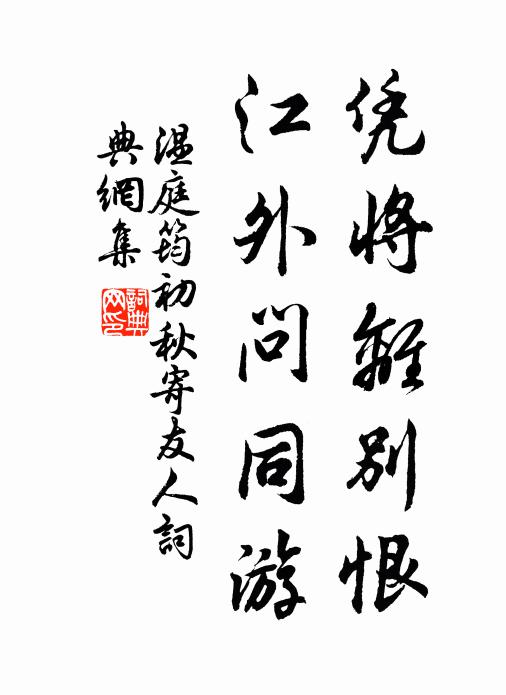 凭将離别恨
江外问同游
温庭筠初秋寄友人詞
典網集
詞典網印